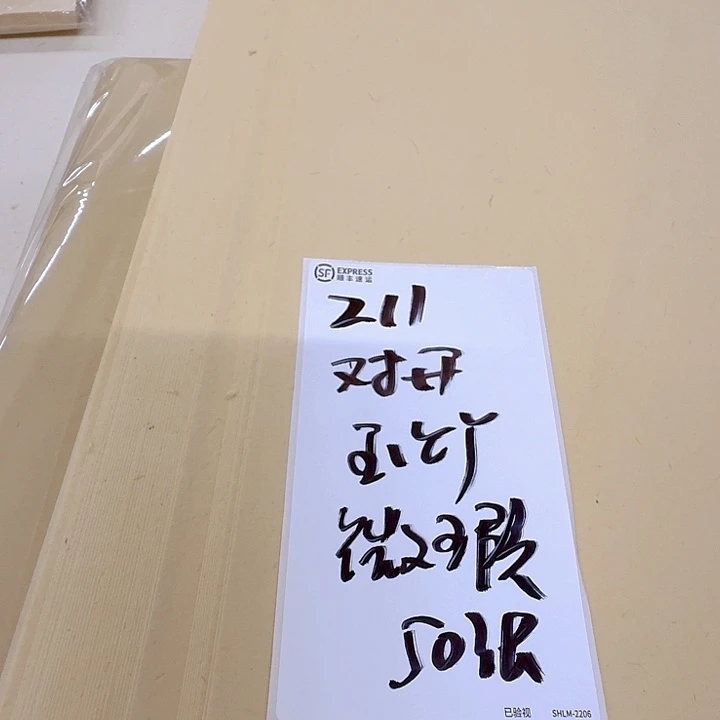 SF EXPRESS
顺丰速运
211
对开
微瑕
50张
已验视 SHLM-2206